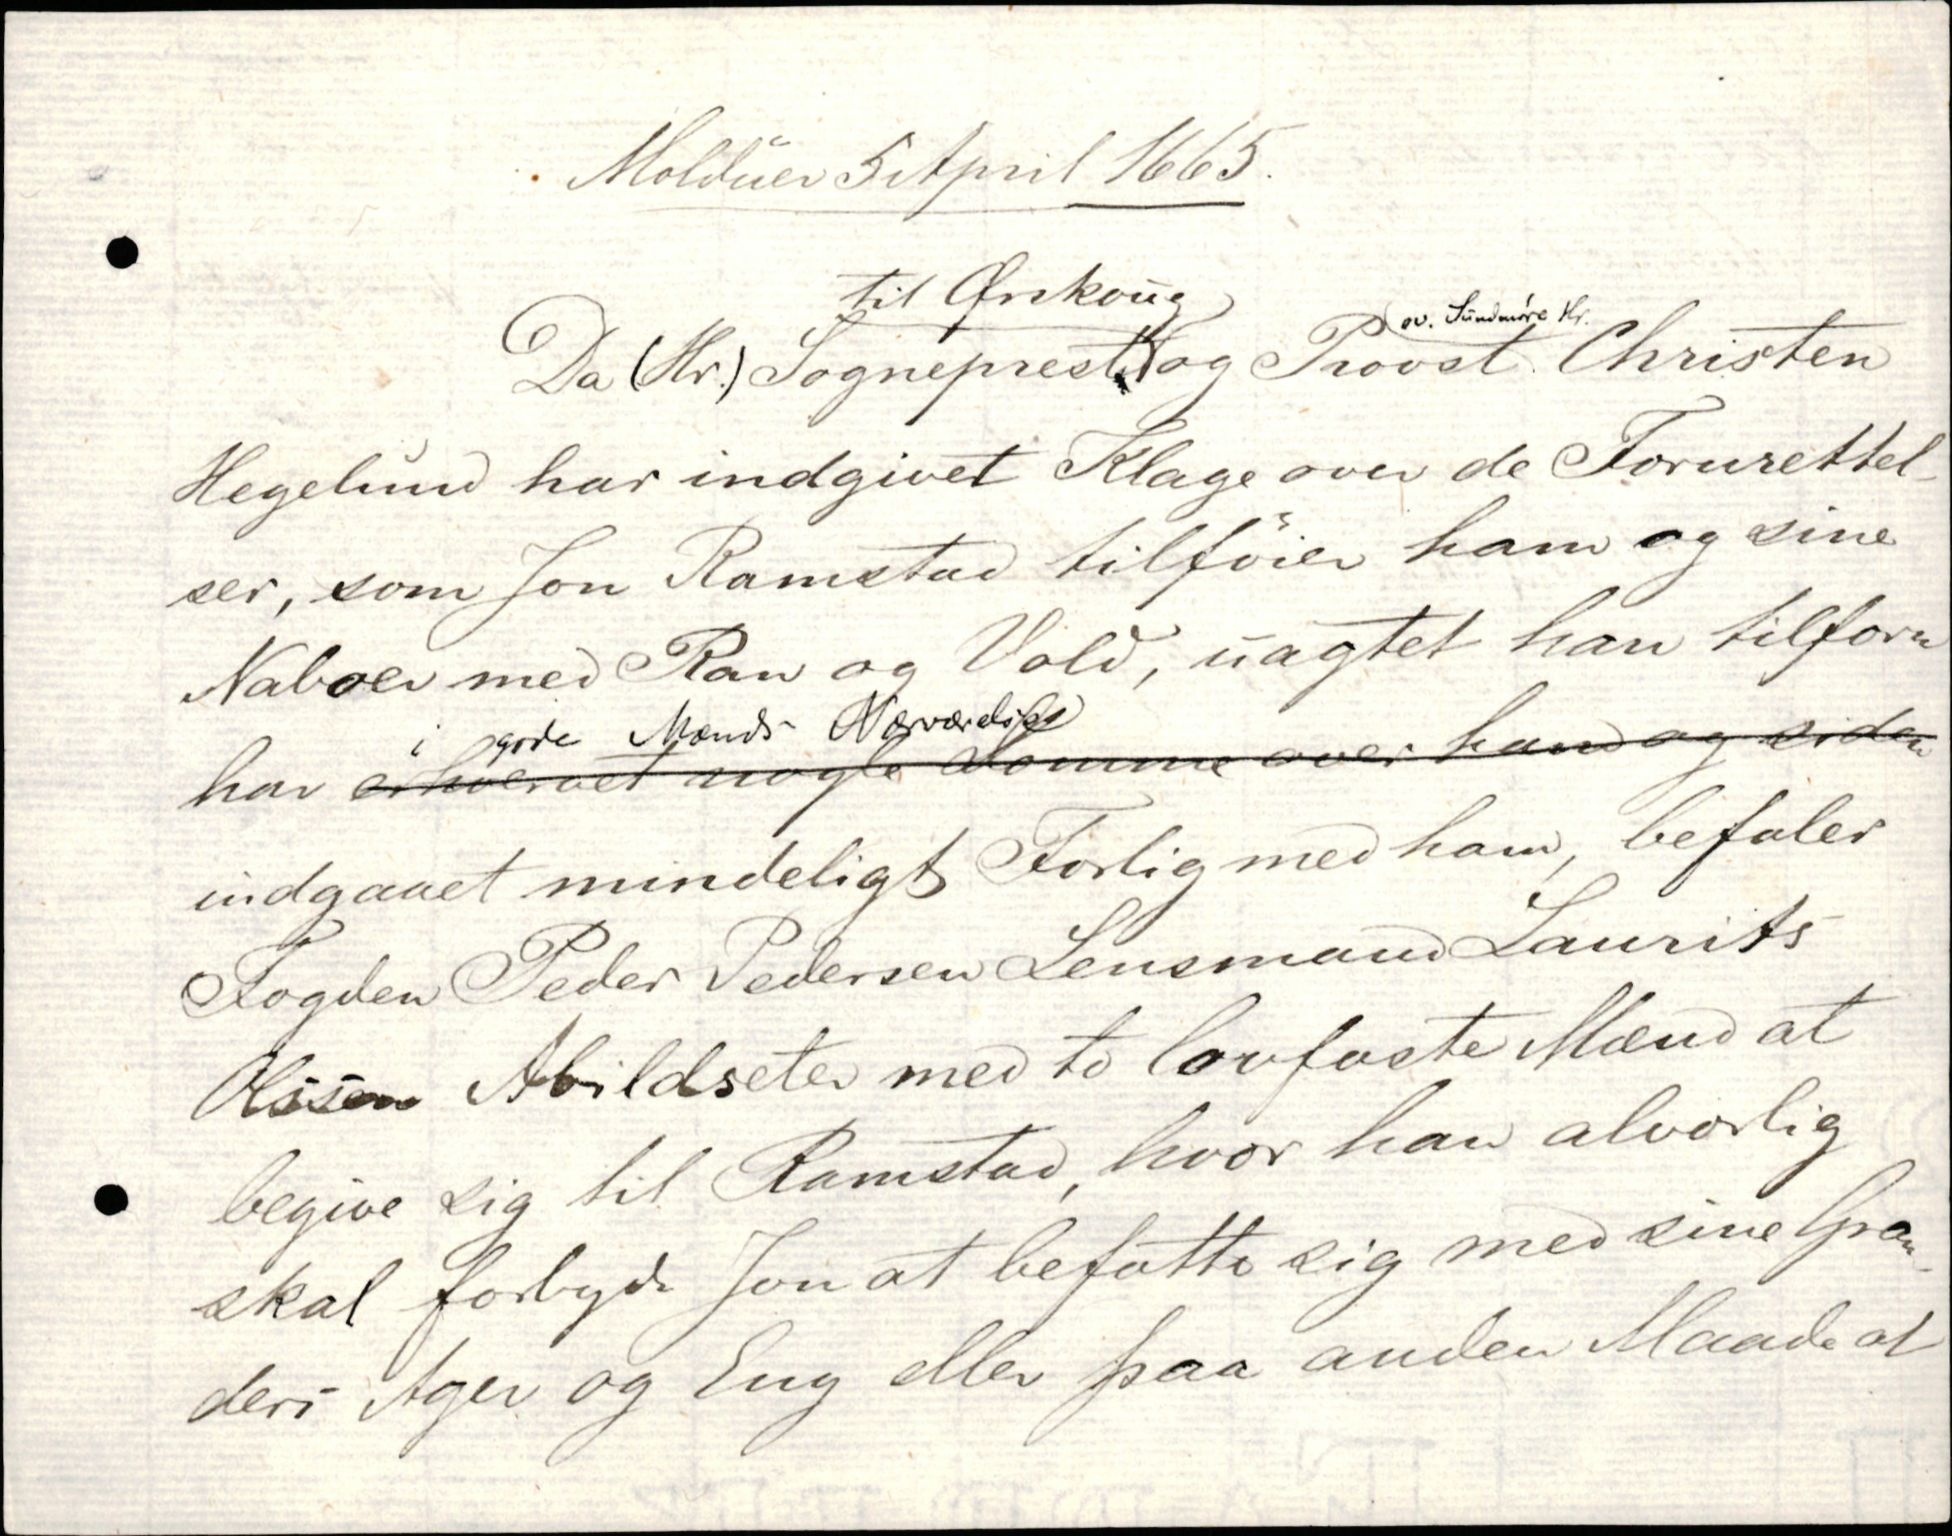 Moldüer 5 April 1665.
til Ørskoug
ov. Sundmøre Hr.
Da (Hr.) Sogneprest og Provst Christen
Hegelund har indgivet Klage over de Forurettel-
ser, som Jon Ramstad tilföier ham og sine
Naboer med Ran og Vold, uagtet han tilforn
i gode Mænds Nærværelse
har erhvervet nogle Domme over ham og siden
indgaaet mindeligt Forlig med ham, befaler
Fogden Peder Pedersen Lensmand Laurits
Olssen Abildseter med to lovfaste Mænd at
begive sig til Ramstad, hvor han alvorlig
skal forbyde Jon at befatte sig med sine Gran-
ders Ager og Eng eller paa anden Maade at